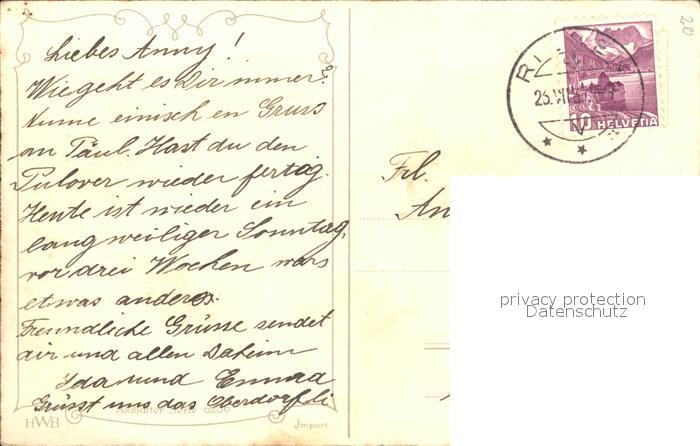 Liebes Anny!
Wie geht es Dir immer?
Nume einisch en Gruss
an Päul. Hast du den
Pulover wieder fertig.
Heute ist wieder ein
langweiliger Sonntag,
vor drei Wochen wars
etwas anderes.
Freundliche Grüsse sendet
dir und allen Daheim
Ida und Emma
Grüsst uns das Oberdörfli
HWB
Import
Frl.
An
10 HELVETIA
20
privacy protection
Datenschutz